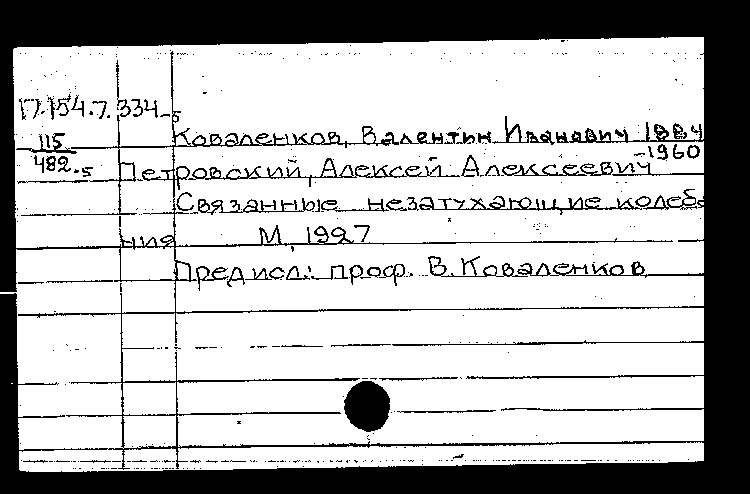 П.154.7.334-5
Коваленков, Валентин Иванович 1884
115
-1960
482-5
Петровский, Алексей Алексеевич
Связанные незатухающие колеба
ния М, 1927
Предисл.: проф. В. Коваленков